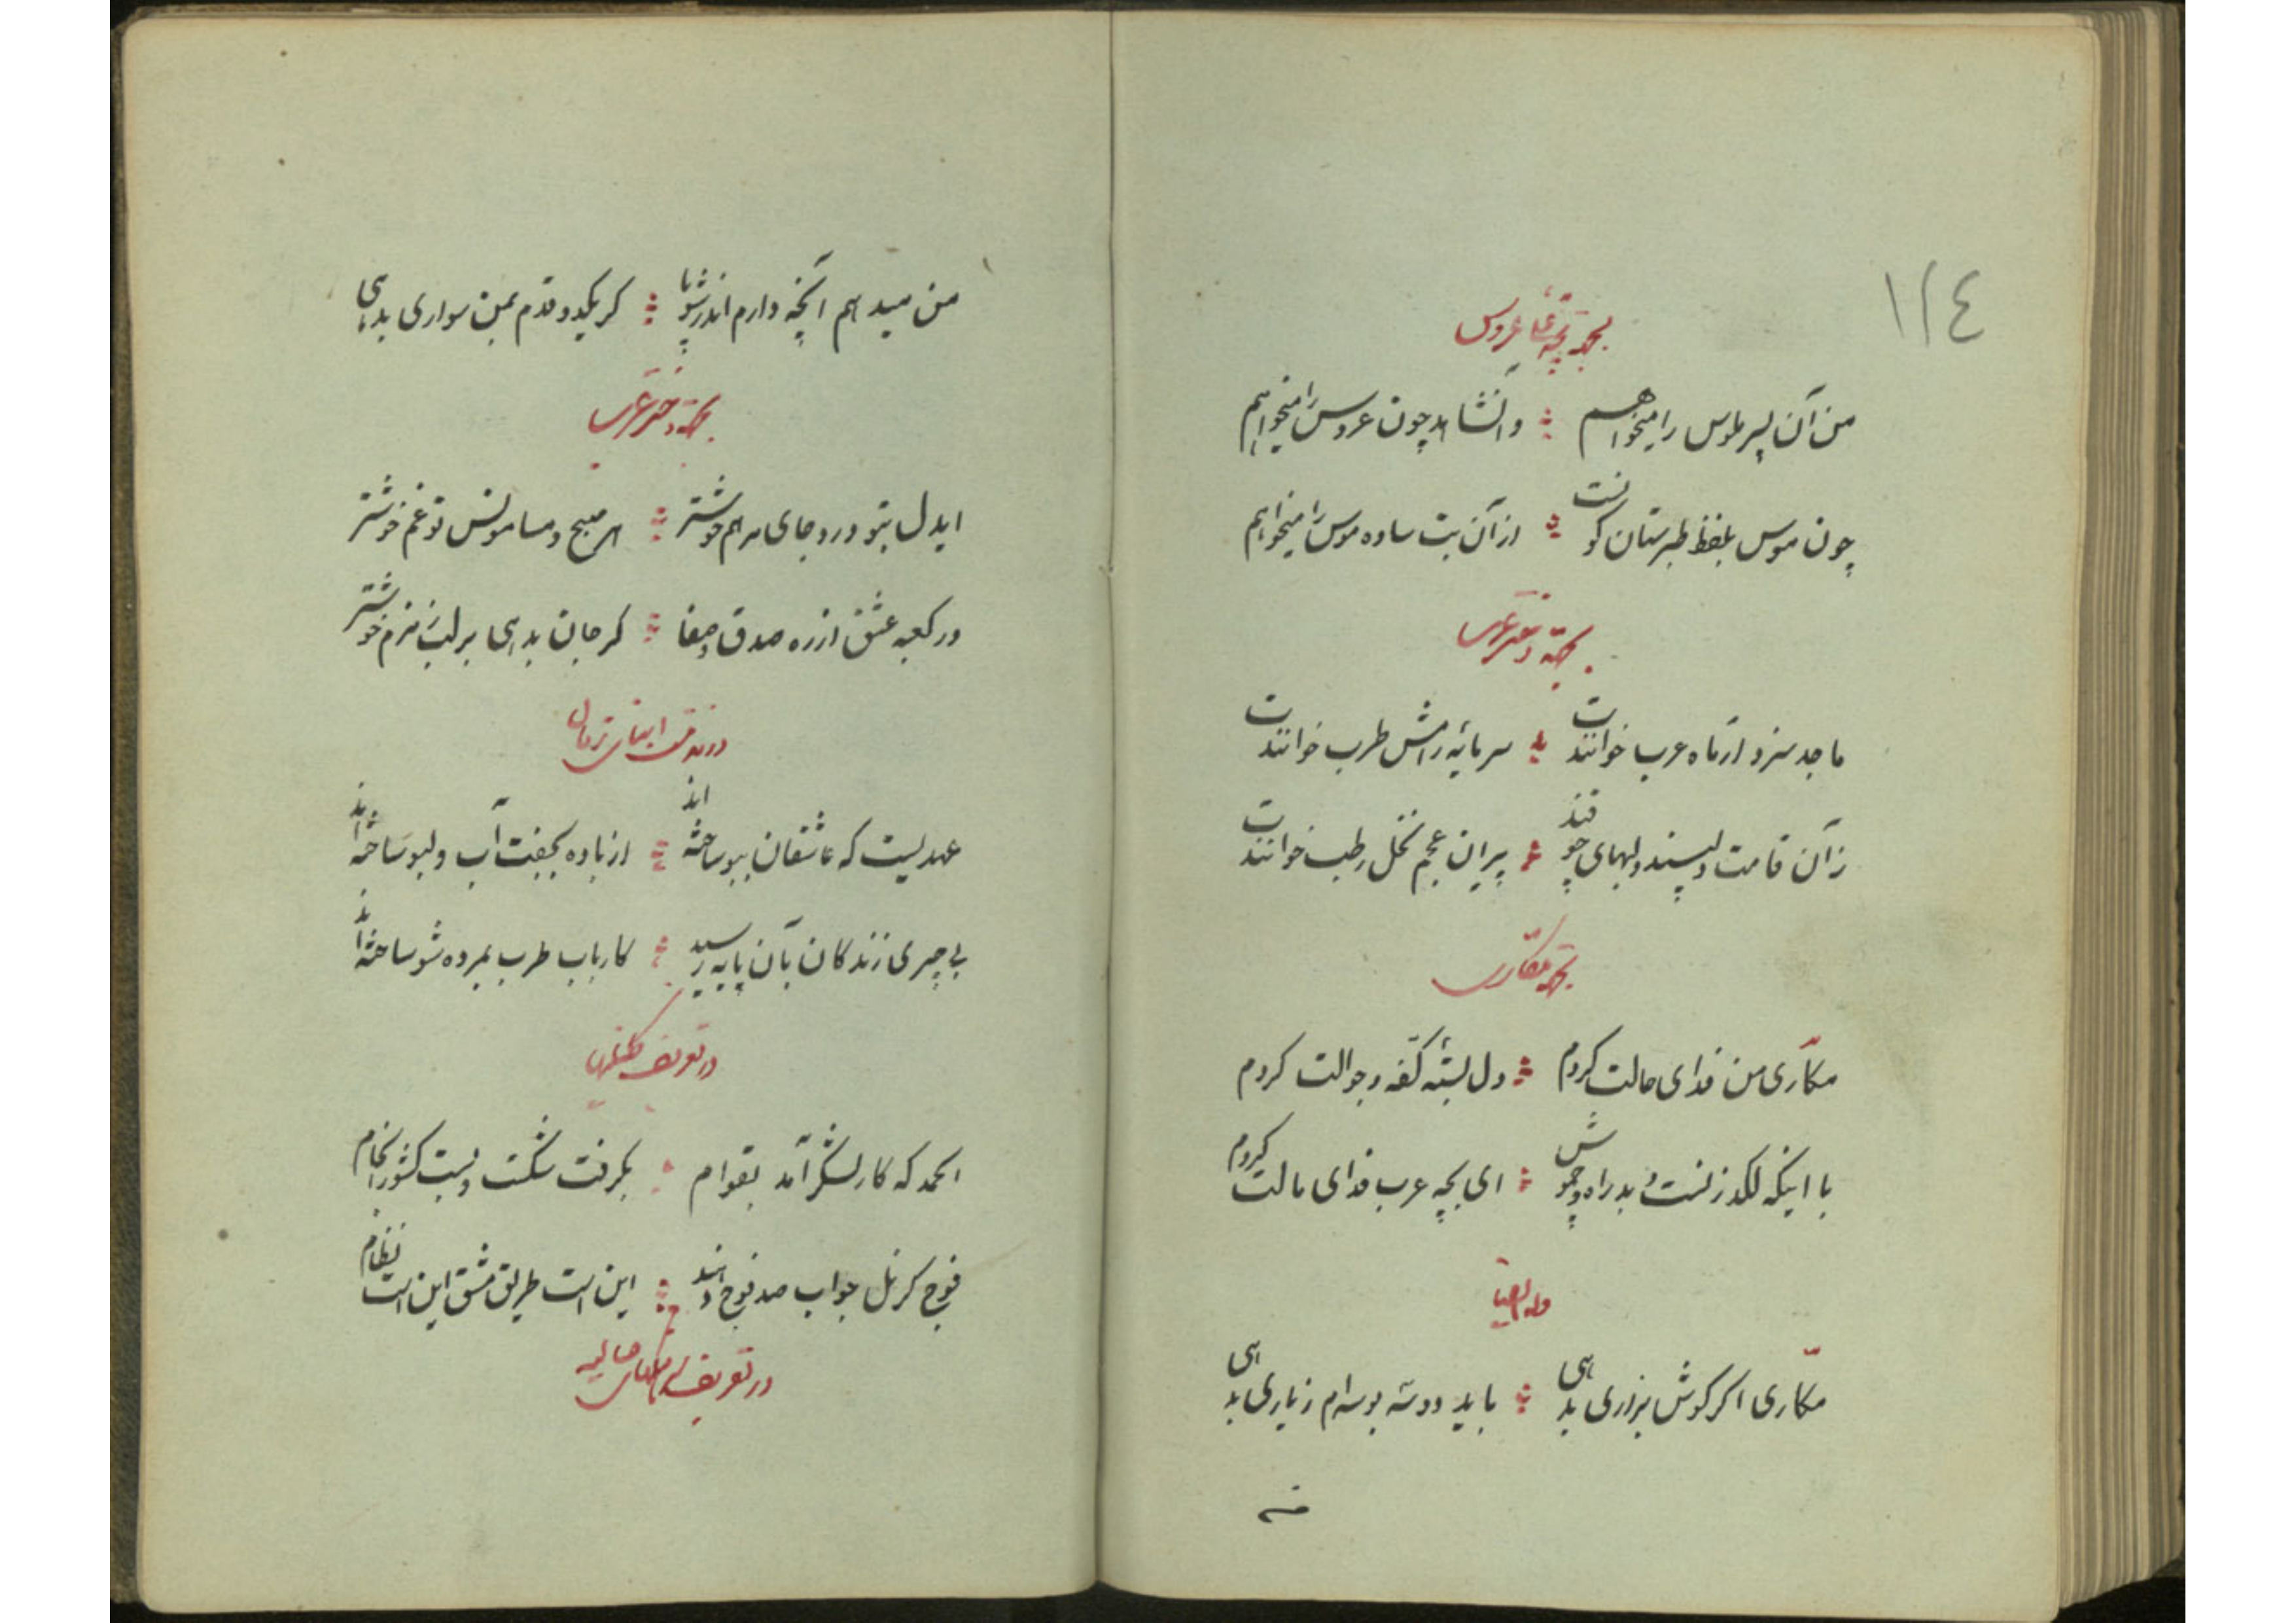 ١٢٤
بجهة بچه عروس
من آن پسر ملوس را میخواهم وانشاهد چون عروس را میخواهم
چون موس بلفظ طبرستان کونست از آن بت ساده موس را میخواهم
بجهة دختر عرب
ماجد سزد ار ماه عرب خوانندت سرمایهٔ رامش طرب خوانندت
زآن قامت دلپسند ولبهای چو قند پیران عجم نخل رطب خوانندت
بجهة مکاری
مکاری من فدای حالت کردم دل بستهٔ کفه و جوالت کردم
با اینکه لکد زنست و بد راه و چموش ای بچه عرب فدای مالت کردم
وله ایضا
مکاری اکر کوش بزاری بدهی باید دوسه بوسه‌ام زیاری بدهی
من
من میدهم آنچه دارم اندر شو پا کر یکدو قدم بمن سواری بدهی
بجهة دختر عرب
ایدل بتو درد جای مرهم خوشتر هر صبح و مسا مونس تو غم خوشتر
در کعبه عشق از ره صدق و صفا کر جان بدهی بر لب زمزم خوشتر
در مذمت ابنای زمان
عهدیست که عاشقان ببو ساخته‌اند از باده بجفت آب ولبو ساخته‌اند
بی چیزی زندکان بآن پایه رسید کارباب طرب بمرده شو ساخته‌اند
در تعریف
الحمد که کار لشکر آمد بقوام بکرفت شکست و بست کشور انجام
فوج کرنل جواب صد فوج دهند این است طریق مشق این است نظام
در تعریف حالیه